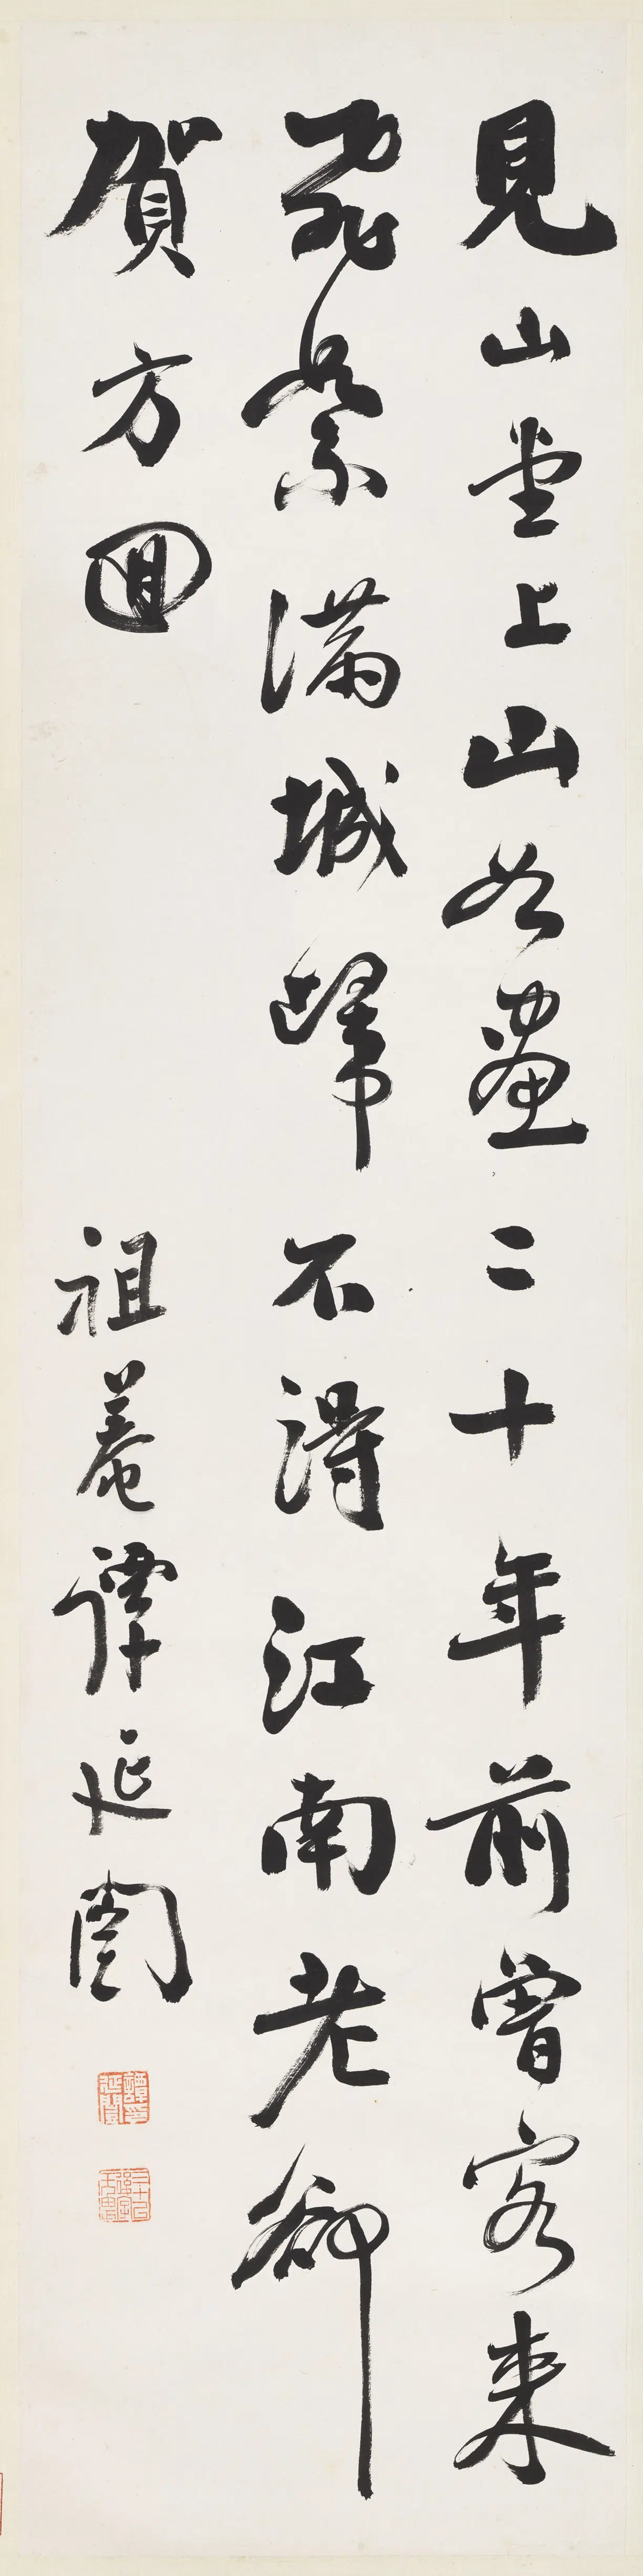 見山堂上山如畫二十年前曾客来
飛絮滿城歸不得江南老卻
賀方囬
祖菴譚延闓
譚印延闓